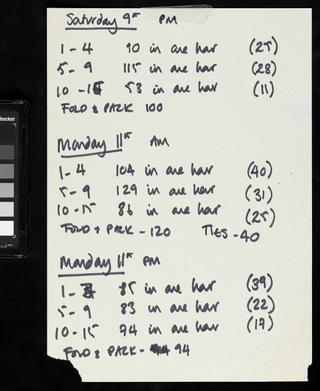 checker
Saturday 9th PM
1 - 4 90 in one hour (25)
5 - 9 115 in one hour (28)
10 - 15 53 in one hour (11)
FOLD & PACK 100
Monday 11th AM
1 - 4 104 in one hour (40)
5 - 9 129 in one hour (31)
10 - 15 86 in one hour (25)
FOLD & PACK - 120 TIES - 40
Monday 11th PM
1 - 85 in one hour (39)
5 - 9 83 in one hour (22)
10 - 15 74 in one hour (17)
FOLD & PACK - 94